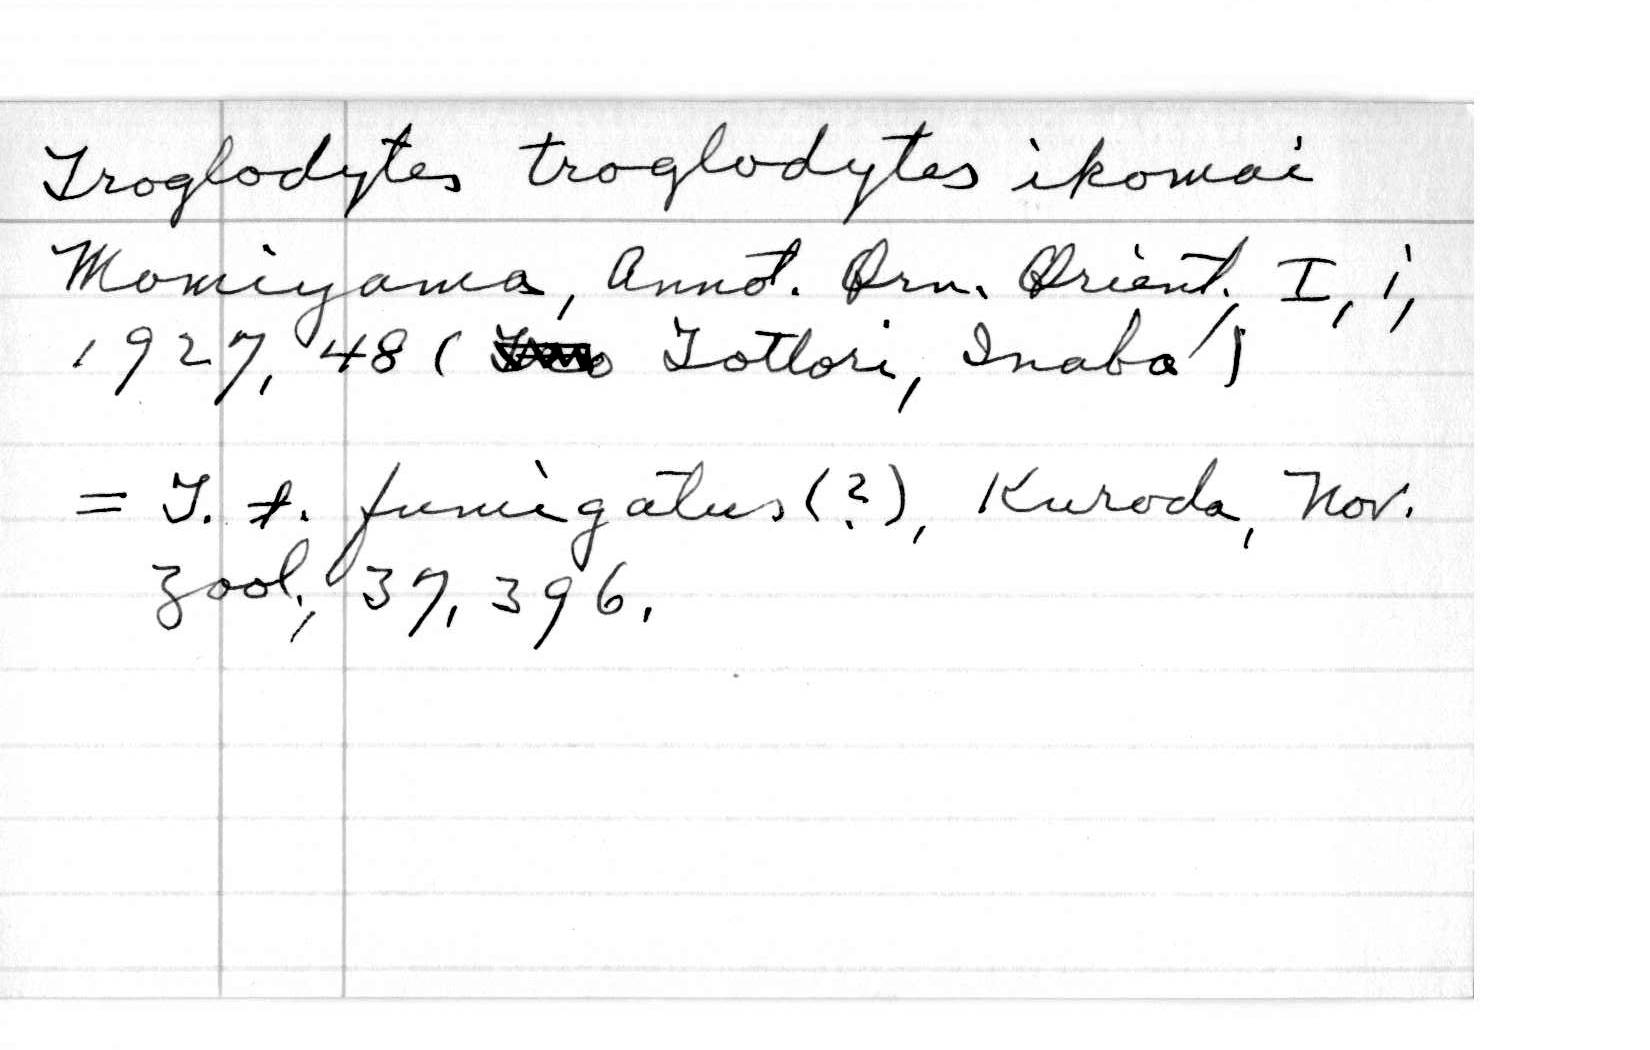 Troglodytes troglodytes ikomai
Momiyama, Annot. Orn. Orient., I, i,
1927, 48 ( Tottori, Inaba)
= T. t. fumigatus (?), Kuroda, Nov.
Zool., 37, 396.